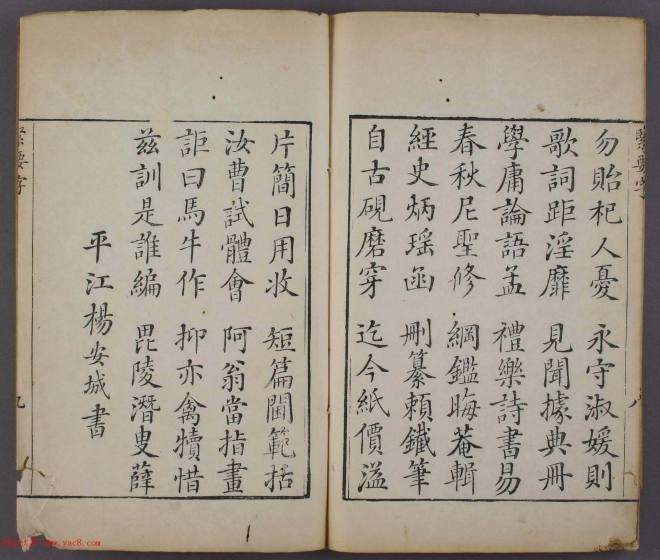 勿貽杞人憂 永守淑媛則
歌詞距淫靡 見聞據典冊
學庸論語孟 禮樂詩書易
春秋尼聖修 綱鑑晦菴輯
經史炳瑶函 刪纂頼鐵筆
自古硯磨穿 迄今紙價溢
片簡日用收 短篇閫範括
汝曹試體會 阿翁當指畫
詎曰馬牛作 抑亦禽犢惜
茲訓是誰編 毘陵潛叟薛
平江楊安城書
緊要字
八
緊要字
九
www.yac8.com